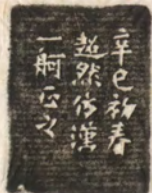 辛巳初春
超然仿漢
一舸正之